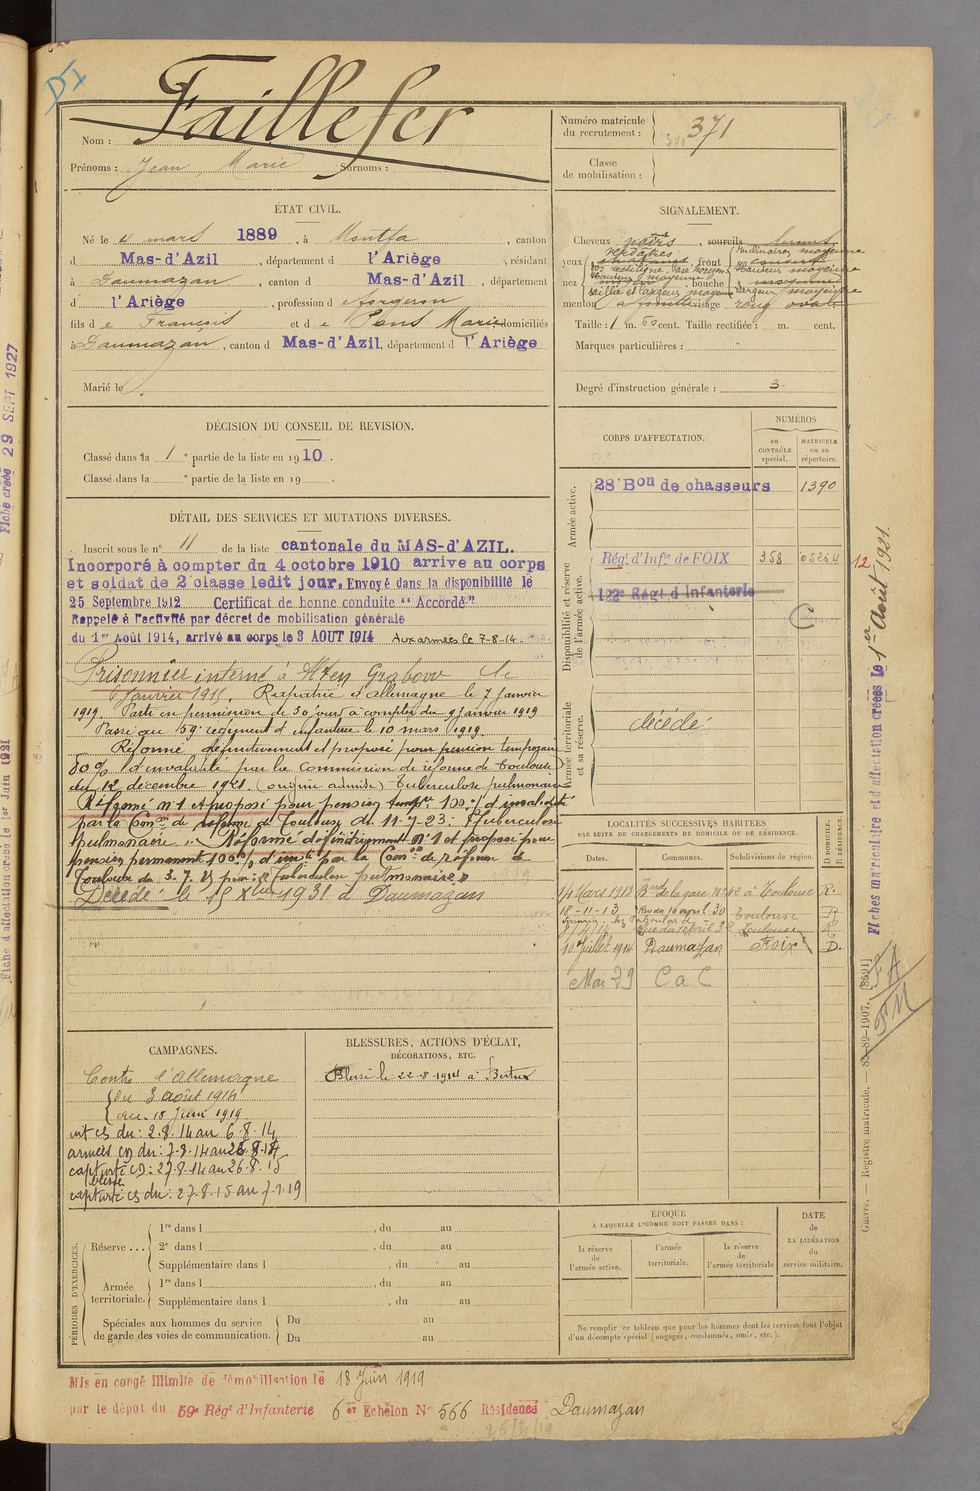 Faillefer
Nom :
Prénoms : Jean, Marie Surnoms :
Numéro matricule
du recrutement : 371
Classe
de mobilisation :
ÉTAT CIVIL.
Né le 4 mars 1889, à Montfa, canton
d Mas-d'Azil, département d l'Ariège, résidant
à Daumazan, canton d Mas-d'Azil, département
d l'Ariège, profession d e forgeron
fils d e François et d e Pons Marie domiciliés
à Daumazan, canton d Mas-d'Azil, département d l'Ariège
Marié le
SIGNALEMENT.
Cheveux noirs, sourcils
yeux verdâtres, front
nez rectiligne, bouche
menton à fossette visage rond ovale
Taille : 1 m. 60 cent. Taille rectifiée : m. cent.
Marques particulières :
Degré d'instruction générale : 3
DÉCISION DU CONSEIL DE REVISION.
Classé dans la 1e partie de la liste en 1910.
Classé dans la e partie de la liste en 19
DÉTAIL DES SERVICES ET MUTATIONS DIVERSES.
Inscrit sous le n° 11 de la liste cantonale du MAS-d'AZIL.
Incorporé à compter du 4 octobre 1910 arrive au corps
et soldat de 2e classe ledit jour. Envoyé dans la disponibilité le
25 Septembre 1912 Certificat de bonne conduite "Accordé"
Rappelé à l'activité par décret de mobilisation générale
du 1er Août 1914, arrivé au corps le 3 AOUT 1914 Aux armées le 7-8-14
Prisonnier interné à Alten Grabow le
6 Janvier 1915. Rapatrié d'allemagne le 7 Janvier
1919. Parti en permission de 30 jours à compter du 9 Janvier 1919
Passé au 59e régiment d'infanterie le 10 mars 1919.
Réformé définitivement et proposé pour pension temporaire
80% d'invalidité par la Commission de réforme de Toulouse
du 12 décembre 1921. (origine admise) Tuberculose pulmonaire
Réformé n°1 et proposé pour pension temp.re 100% d'invalidité
par la Comon de réforme de Toulouse du 11-7-23: Tuberculose
pulmonaire". Réformé définitivement n°1 et proposé pour
pension permanente 100% d'invté par la Comon de réforme de
Toulouse du 3.7.25 pour: "Tuberculose pulmonaire"
Décédé le 15 Xbre 1931 à Daumazan
CORPS D'AFFECTATION.
NUMÉROS
au CONTRÔLE spécial.
MATRICULE ou au répertoire.
Armée active.
28e Bon de chasseurs 1390
Disponibilité et réserve de l'armée active.
Régt d'Infie de FOIX 358 05264
122e Régt d'Infanterie
Armée territoriale et sa réserve.
décédé
LOCALITÉS SUCCESSIVES HABITÉES
PAR SUITE DE CHANGEMENTS DE DOMICILE OU DE RÉSIDENCE.
Dates. Communes. Subdivisions de région. D DOMICILE. R RÉSIDENCE.
14 Mars 1913 Bard de la gare n° 42 à Toulouse R.
18-11-13 Rue du 10 avril 30 Toulouse R
Rue du 10 avril Toulouse R
10 Juillet 1914 Daumazan Foix D.
Mai 29 C a C
CAMPAGNES.
Contre l'Allemagne
Du 3 août 1914
au 18 Juin 1919
int cs du: 2.8.14 au 6.8.14
armées CD du: 7.8.14 au 26.8.14
capturé CD: 27.8.14 au 26.8.15
blessé
capturé cs du: 27.8.15 au 7.1.19
BLESSURES, ACTIONS D'ÉCLAT,
DÉCORATIONS, ETC.
Blessé le 22-8-1914 à Bertrix
PÉRIODES D'EXERCICES.
Réserve ... 1re dans l , du au
2e dans l , du au
Supplémentaire dans l , du au
Armée territoriale. 1re dans l , du au
Supplémentaire dans l , du au
Spéciales aux hommes du service
de garde des voies de communication. Du au
Du au
ÉPOQUE
À LAQUELLE L'HOMME DOIT PASSER DANS :
la réserve de l'armée active.
l'armée territoriale.
la réserve de l'armée territoriale
DATE de LA LIBÉRATION du service militaire.
Ne remplir ce tableau que pour les hommes dont les services font l'objet
d'un décompte spécial (engagés, condamnés, omis, etc.).
Mis en congé illimité de démobilisation le 18 Juin 1919
par le dépôt du 59e Régt d'Infanterie 6e Echelon N° 566 Résidence Daumazan
12
Fiches matriculaire et d'affectation créées le 1er Août 1921.
Guerre. — Registre matricule. — 83-89-1907. [8391]
FA
FM
Fiche créée 29 SEPT 1927
Fiche d'affectation créée le 1er Juin 1921